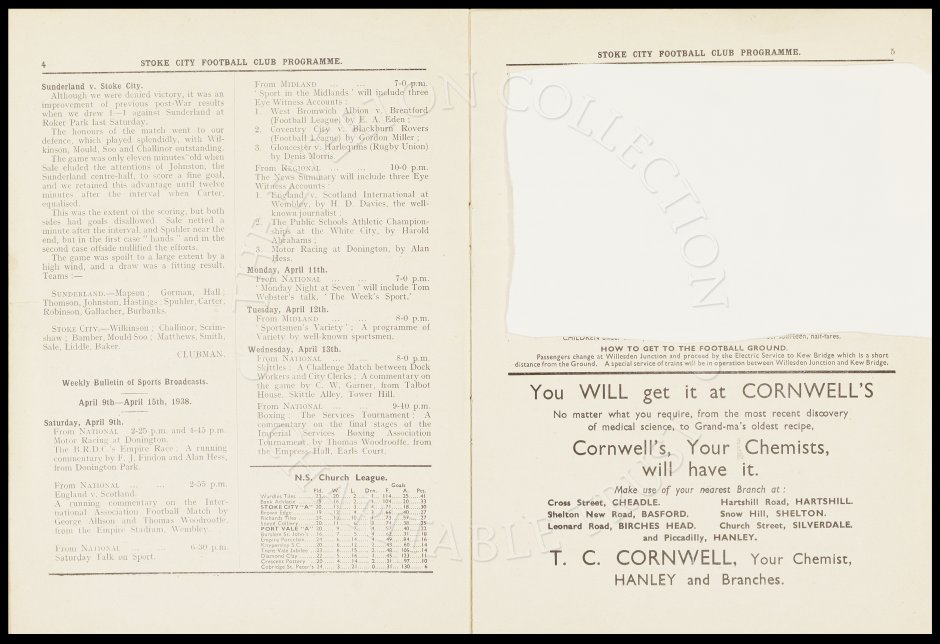 4
STOKE CITY FOOTBALL CLUB PROGRAMME.
Sunderland v. Stoke City.
Although we were denied victory, it was an
improvement of previous post-War results
when we drew 1—1 against Sunderland at
Roker Park last Saturday.
The honours of the match went to our
defence, which played splendidly, with Wil-
kinson, Mould, Soo and Challinor outstanding.
The game was only eleven minutes old when
Sale eluded the attentions of Johnston, the
Sunderland centre-half, to score a fine goal,
and we retained this advantage until twelve
minutes after the interval when Carter,
equalised.
This was the extent of the scoring, but both
sides had goals disallowed. Sale netted a
minute after the interval, and Spuhler near the
end, but in the first case " hands " and in the
second case offside nullified the efforts.
The game was spoilt to a large extent by a
high wind, and a draw was a fitting result.
Teams :—
SUNDERLAND.—Mapson ; Gorman, Hall ;
Thomson, Johnston, Hastings ; Spuhler, Carter,
Robinson, Gallacher, Burbanks.
STOKE CITY.—Wilkinson ; Challinor, Scrim-
shaw ; Bamber, Mould Soo ; Matthews, Smith,
Sale, Liddle, Baker.
CLUBMAN.
Weekly Bulletin of Sports Broadcasts.
April 9th—April 15th, 1938.
Saturday, April 9th.
From NATIONAL 2-25 p.m. and 4-45 p.m.
Motor Racing at Donington.
The B.R.D.C.'s Empire Race : A running
commentary by F. J. Findon and Alan Hess,
from Donington Park.
From NATIONAL ... ... 2-55 p.m.
England v. Scotland.
A running commentary on the Inter-
national Association Football Match by
George Allison and Thomas Woodrooffe,
from the Empire Stadium, Wembley.
From NATIONAL ... ... 6-30 p.m.
Saturday Talk on Sport.
From MIDLAND ... ... 7-0 p.m.
' Sport in the Midlands ' will include three
Eye Witness Accounts :
1. West Bromwich Albion v. Brentford
(Football League) by E. A. Eden ;
2. Coventry City v. Blackburn Rovers
(Football League) by Gordon Miller ;
3. Gloucester v. Harlequins (Rugby Union)
by Denis Morris.
From REGIONAL ... ... 10-0 p.m.
The News Summary will include three Eye
Witness Accounts :
1. England v. Scotland International at
Wembley, by H. D. Davies, the well-
known journalist ;
2. The Public Schools Athletic Champion-
ships at the White City, by Harold
Abrahams ;
3. Motor Racing at Donington, by Alan
Hess.
Monday, April 11th.
From NATIONAL ... ... 7-0 p.m.
' Monday Night at Seven ' will include Tom
Webster's talk, ' The Week's Sport.'
Tuesday, April 12th.
From MIDLAND ... ... 8-0 p.m.
' Sportsmen's Variety ' : A programme of
Variety by well-known sportsmen.
Wednesday, April 13th.
From NATIONAL ... ... 8-0 p.m.
Skittles : A Challenge Match between Dock
Workers and City Clerks ; A commentary on
the game by C. W. Garner, from Talbot
House, Skittle Alley, Tower Hill.
From NATIONAL ... ... 9-40 p.m.
Boxing : The Services Tournament ; A
commentary on the final stages of the
Imperial Services Boxing Association
Tournament, by Thomas Woodrooffe, from
the Empress Hall, Earls Court.
N.S. Church League.
Goals
Pld. W. L. Drn. F. A. Pts.
STOKE CITY "A"
PORT VALE "A"
STOKE CITY FOOTBALL CLUB PROGRAMME.
5
HOW TO GET TO THE FOOTBALL GROUND.
Passengers change at Willesden Junction and proceed by the Electric Service to Kew Bridge which is a short
distance from the Ground. A special service of trains will be in operation between Willesden Junction and Kew Bridge.
You WILL get it at CORNWELL'S
No matter what you require, from the most recent discovery
of medical science, to Grand-ma's oldest recipe,
Cornwell's, Your Chemists,
will have it.
Make use of your nearest Branch at :
Cross Street, CHEADLE. Hartshill Road, HARTSHILL.
Shelton New Road, BASFORD. Snow Hill, SHELTON.
Leonard Road, BIRCHES HEAD. Church Street, SILVERDALE.
and Piccadilly, HANLEY.
T. C. CORNWELL, Your Chemist,
HANLEY and Branches.